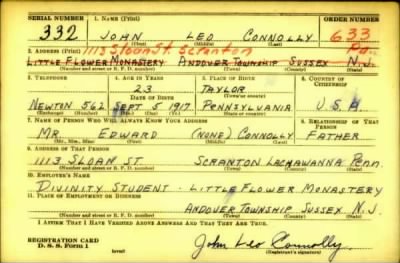 SERIAL NUMBER 1. NAME (Print) ORDER NUMBER
332 JOHN LEO CONNOLLY 633
(First) (Middle) (Last)
1113 Sloan St. Scranton Pa.
2. ADDRESS (Print)
LITTLE FLOWER MONASTERY ANDOVER TOWNSHIP SUSSEX N.J.
(Number and street or R. F. D. number) (Town) (County) (State)
3. TELEPHONE 4. AGE IN YEARS 5. PLACE OF BIRTH 6. COUNTRY OF CITIZENSHIP
23 TAYLOR
DATE OF BIRTH (Town or county)
NEWTON 562 SEPT 5 1917 PENNSYLVANIA U.S.A.
(Exchange) (Number) (Mo.) (Day) (Yr.) (State or country)
7. NAME OF PERSON WHO WILL ALWAYS KNOW YOUR ADDRESS 8. RELATIONSHIP OF THAT PERSON
MR. EDWARD (NONE) CONNOLLY FATHER
(Mr., Mrs., Miss) (First) (Middle) (Last)
9. ADDRESS OF THAT PERSON
1113 SLOAN ST. SCRANTON LACHAWANNA PENN.
(Number and street or R. F. D. number) (Town) (County) (State)
10. EMPLOYER'S NAME
DIVINITY STUDENT - LITTLE FLOWER MONASTERY
11. PLACE OF EMPLOYMENT OR BUSINESS
ANDOVER TOWNSHIP SUSSEX N.J.
(Number and street or R. F. D. number) (Town) (County) (State)
I AFFIRM THAT I HAVE VERIFIED ABOVE ANSWERS AND THAT THEY ARE TRUE.
REGISTRATION CARD
D. S. S. Form 1 (over) John Leo Connolly
(Registrant's signature)